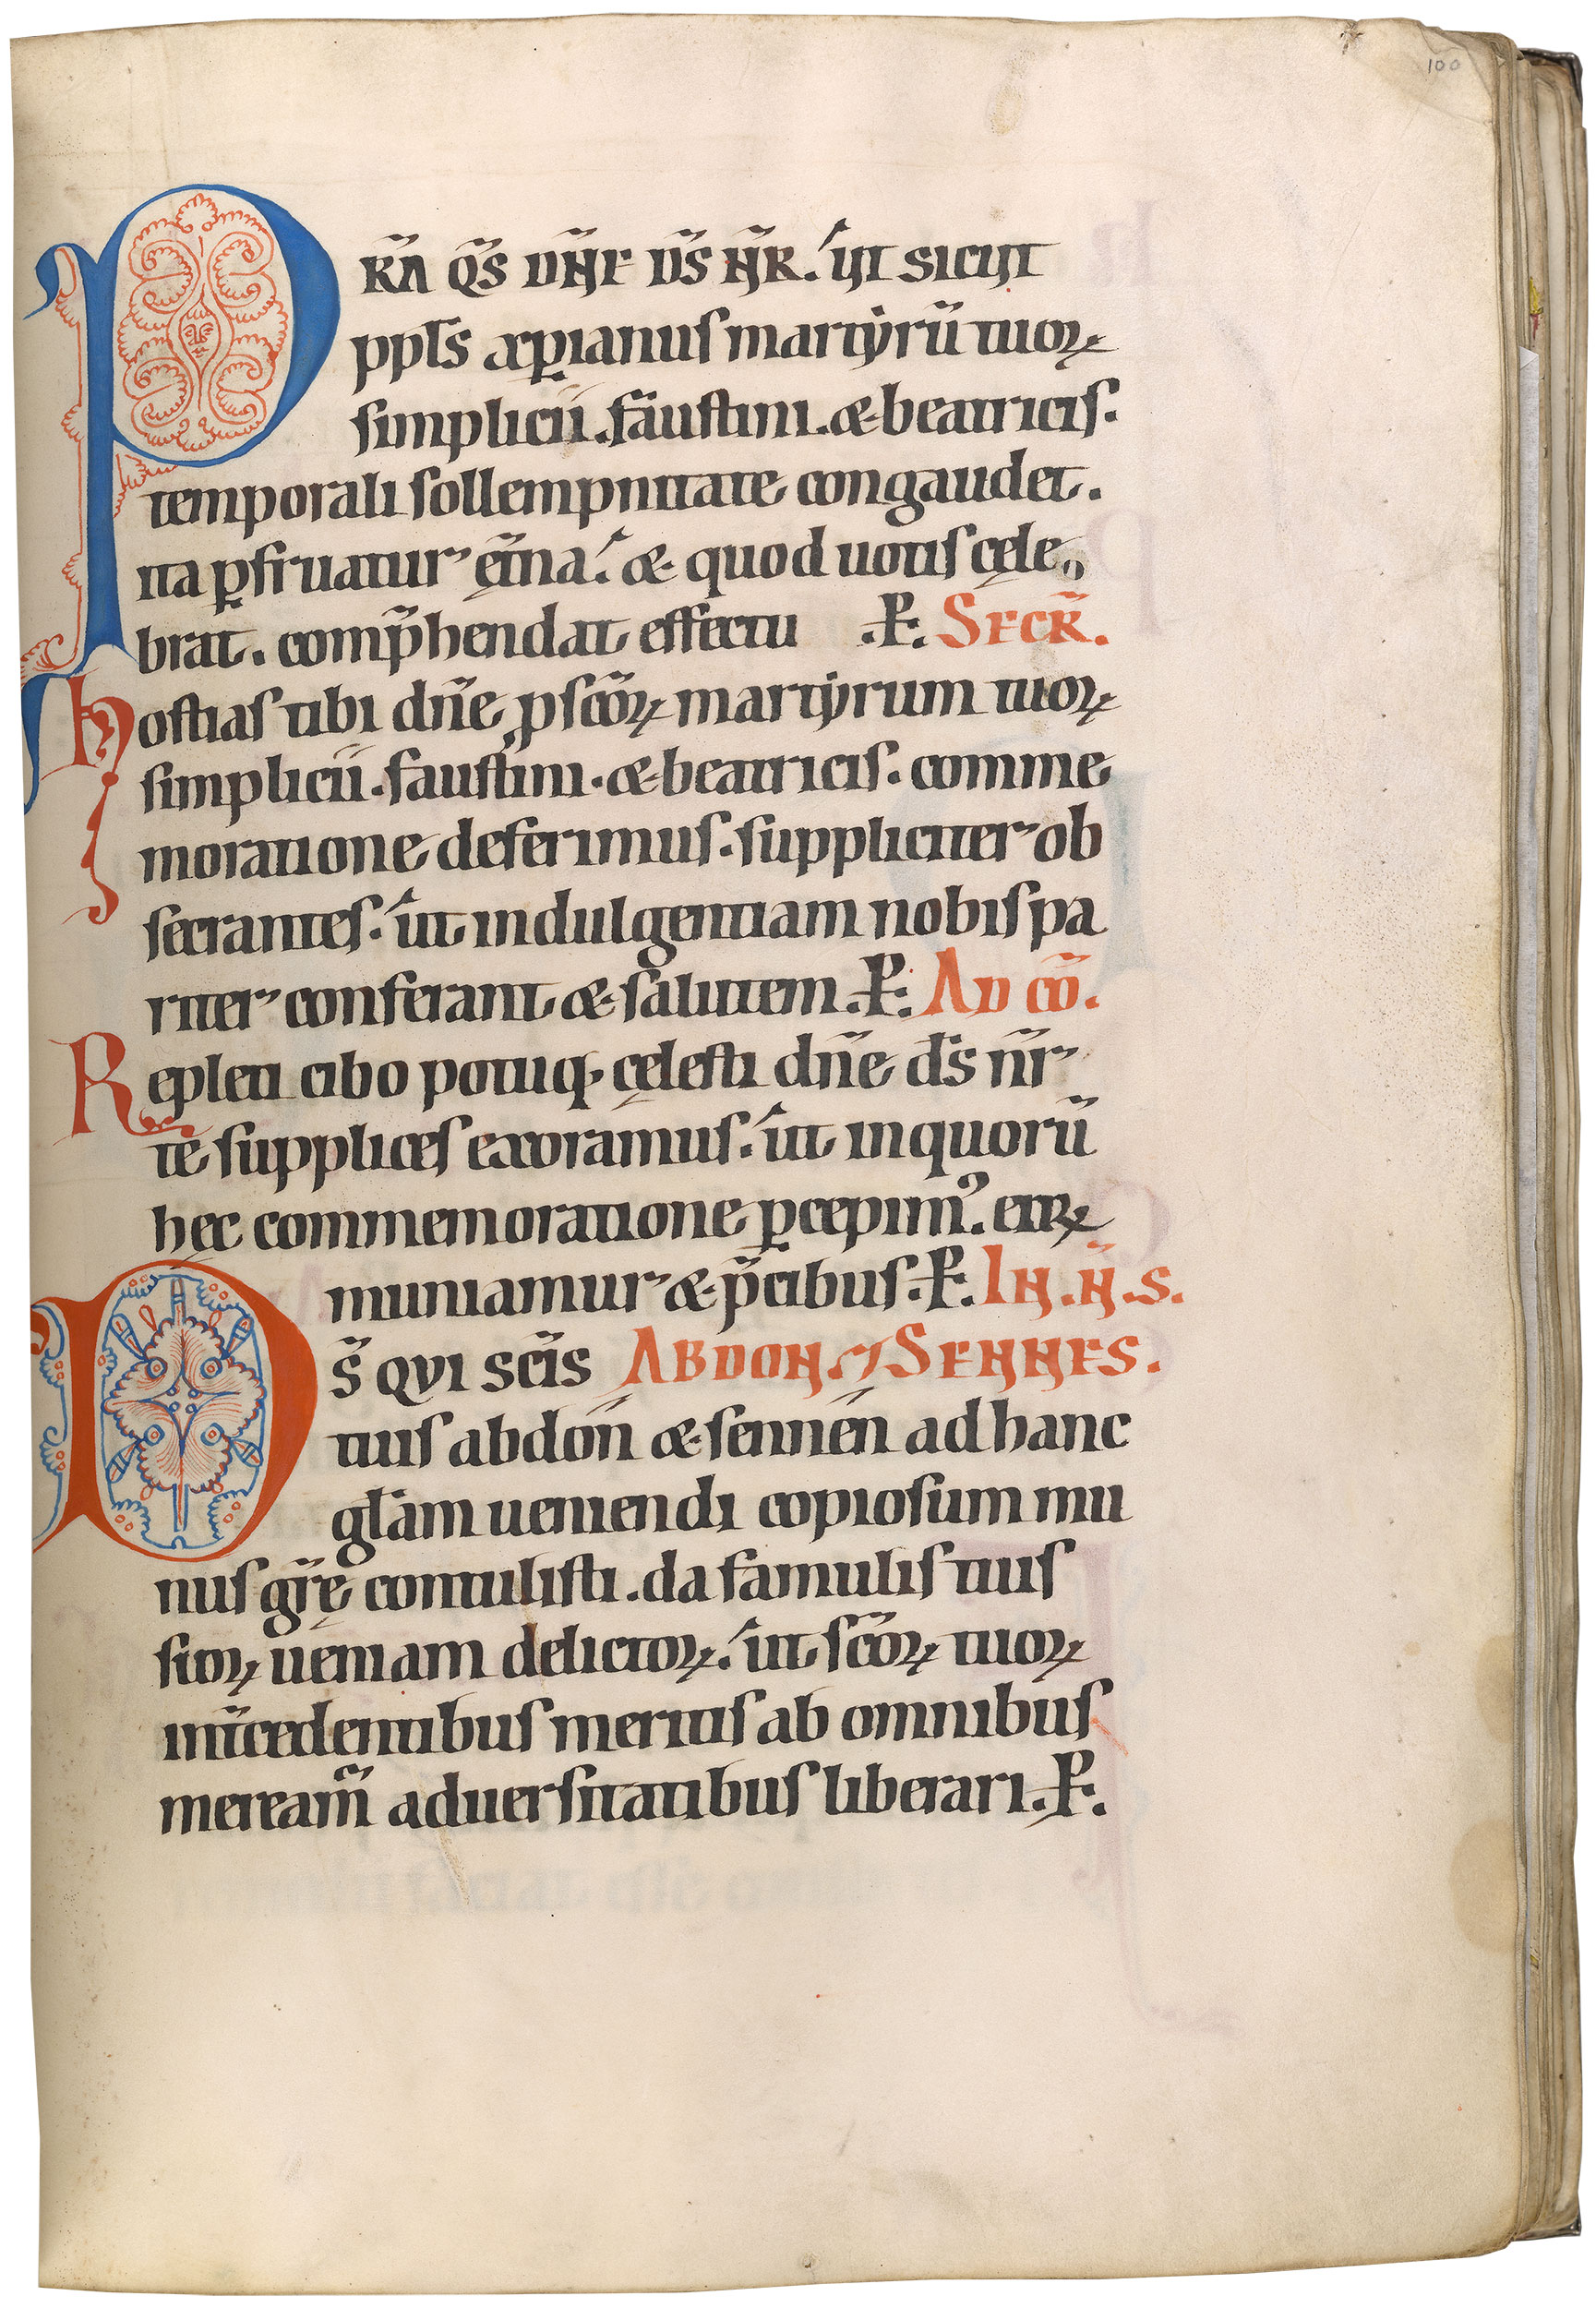 100
PR̃A Q̃S DÑE D̃S ÑR. UT SICUT
ppl̃s xp̃ianus martẏrũ tuoꝝ
simplicíí. faustini. & beatricis.
temporali sollempnitate congaudet.
ita ꝑfruatur ęt̃na. & quod uotis cęle
brat. comp̃hendat effectu .P. SECR̃.
Hostias tibi dñe ꝓ scõꝝ martẏrum tuoꝝ
simplicíí. faustini. & beatricis. comme
moratione deferimus. suppliciter ob
secrantes. ut indulgentiam nobis pa
riter conferant & salutem. P. AD CÕ.
Repleti cibo potuq; cęlesti dñe d̃s nr̃
te supplices exoramus. ut in quorũ
hęc commemoratione ꝑcepimꝰ. eaꝝ
muniamur & p̃cibus. P. IN. Ñ. S.
DS̃ QUI SC̃IS ABDON & SENNES.
tuis abdón & sennén ad hanc
gl̃am ueniendi copiosum mu
nus gr̃ę contulisti. da famulis tuis
suoꝝ ueniam delictoꝝ. ut scõꝝ tuoꝝ
int̃cedentibus meritis ab omnibus
meream̃ aduersitatibus liberari. P.